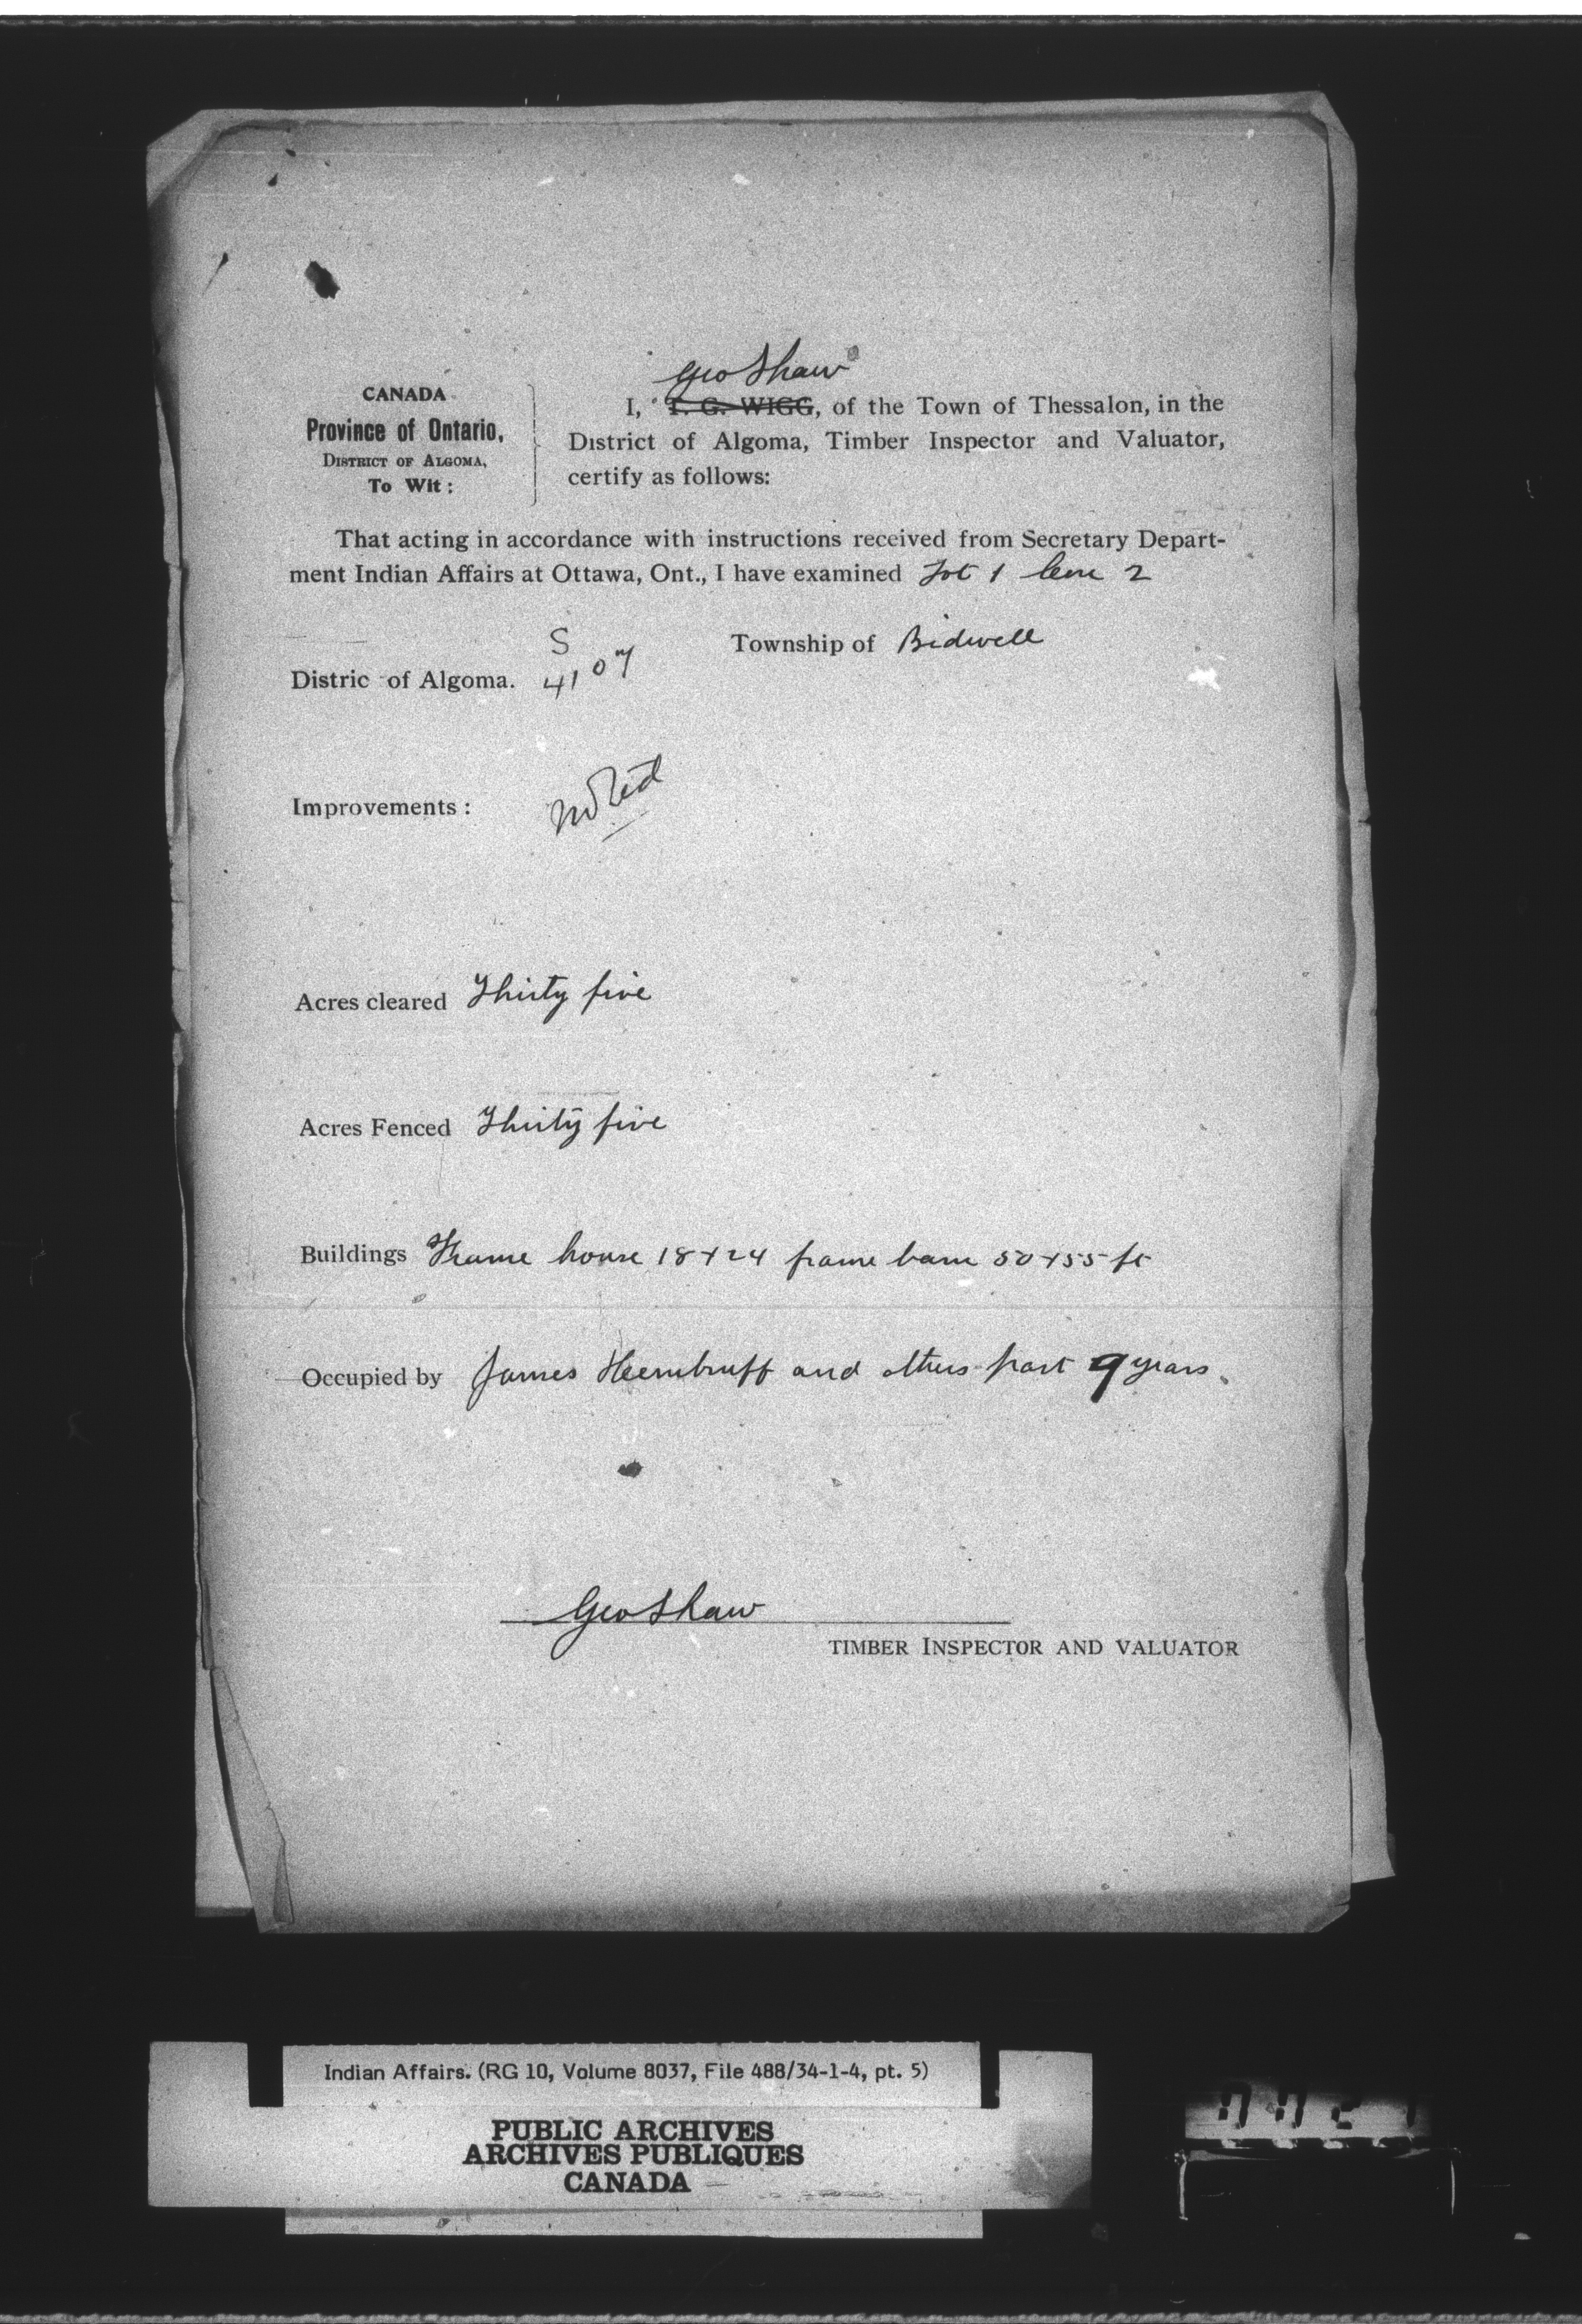 Geo Shaw
CANADA
Province of Ontario,
DISTRICT OF ALGOMA,
To Wit:
I, T. G. WIGG, of the Town of Thessalon, in the
District of Algoma, Timber Inspector and Valuator,
certify as follows:
That acting in accordance with instructions received from Secretary Depart-
ment Indian Affairs at Ottawa, Ont., I have examined Lot 1 Con 2
S
Township of Bidwell
Distric of Algoma. 4107
Improvements: noted
Acres cleared Thirty five
Acres Fenced Thirty five
Buildings Frame house 18x24 frame barn 50x55 ft
Occupied by James Heembruff and others past 9 years.
Geo Shaw
TIMBER INSPECTOR AND VALUATOR
Indian Affairs. (RG 10, Volume 8037, File 488/34-1-4, pt. 5)
PUBLIC ARCHIVES
ARCHIVES PUBLIQUES
CANADA